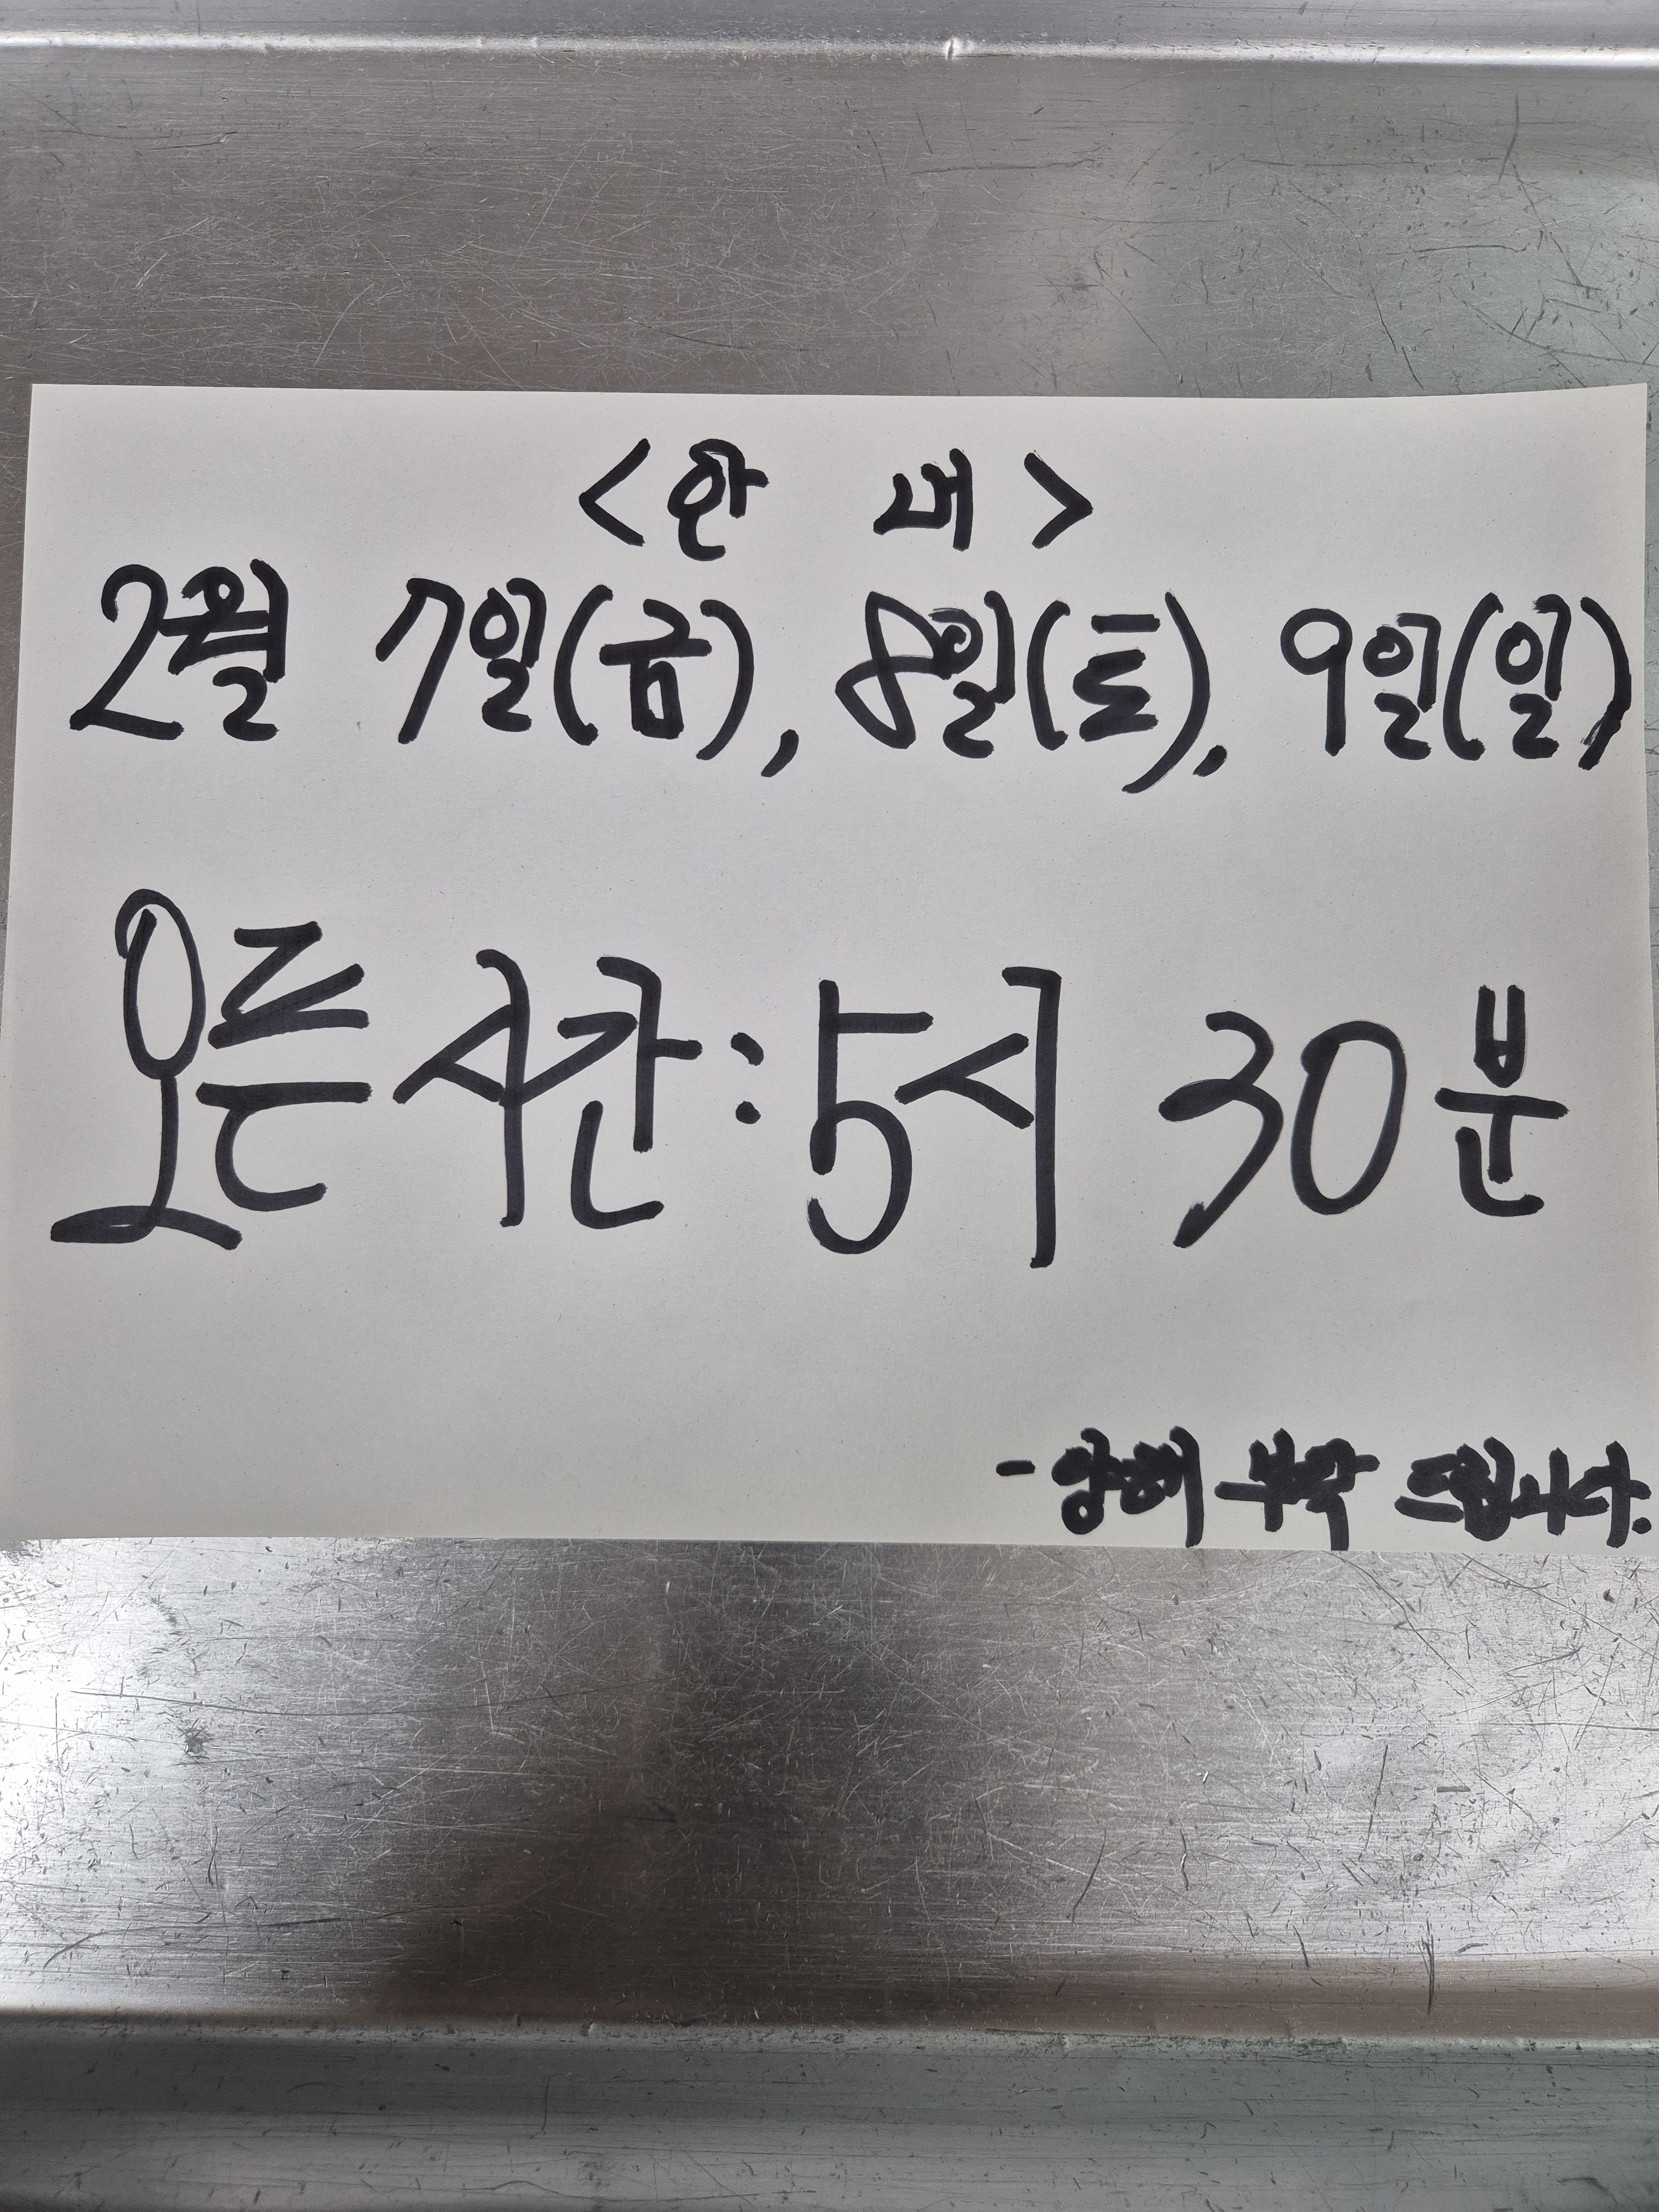 <안 내>
2월 7일(금), 8일(토), 9일(일)
오픈시간:5시 30분
- 양해 부탁 드립니다.